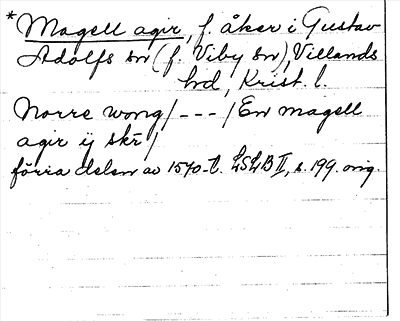 *Magell agir, f. åker i Gustav
Adolfs sn (f. Viby sn), Villands
hd, Krist. l.
Norre wong/ - - - /En magell
agir ij skr/
förra delen av 1570-t. LSLB II, s. 199. orig.